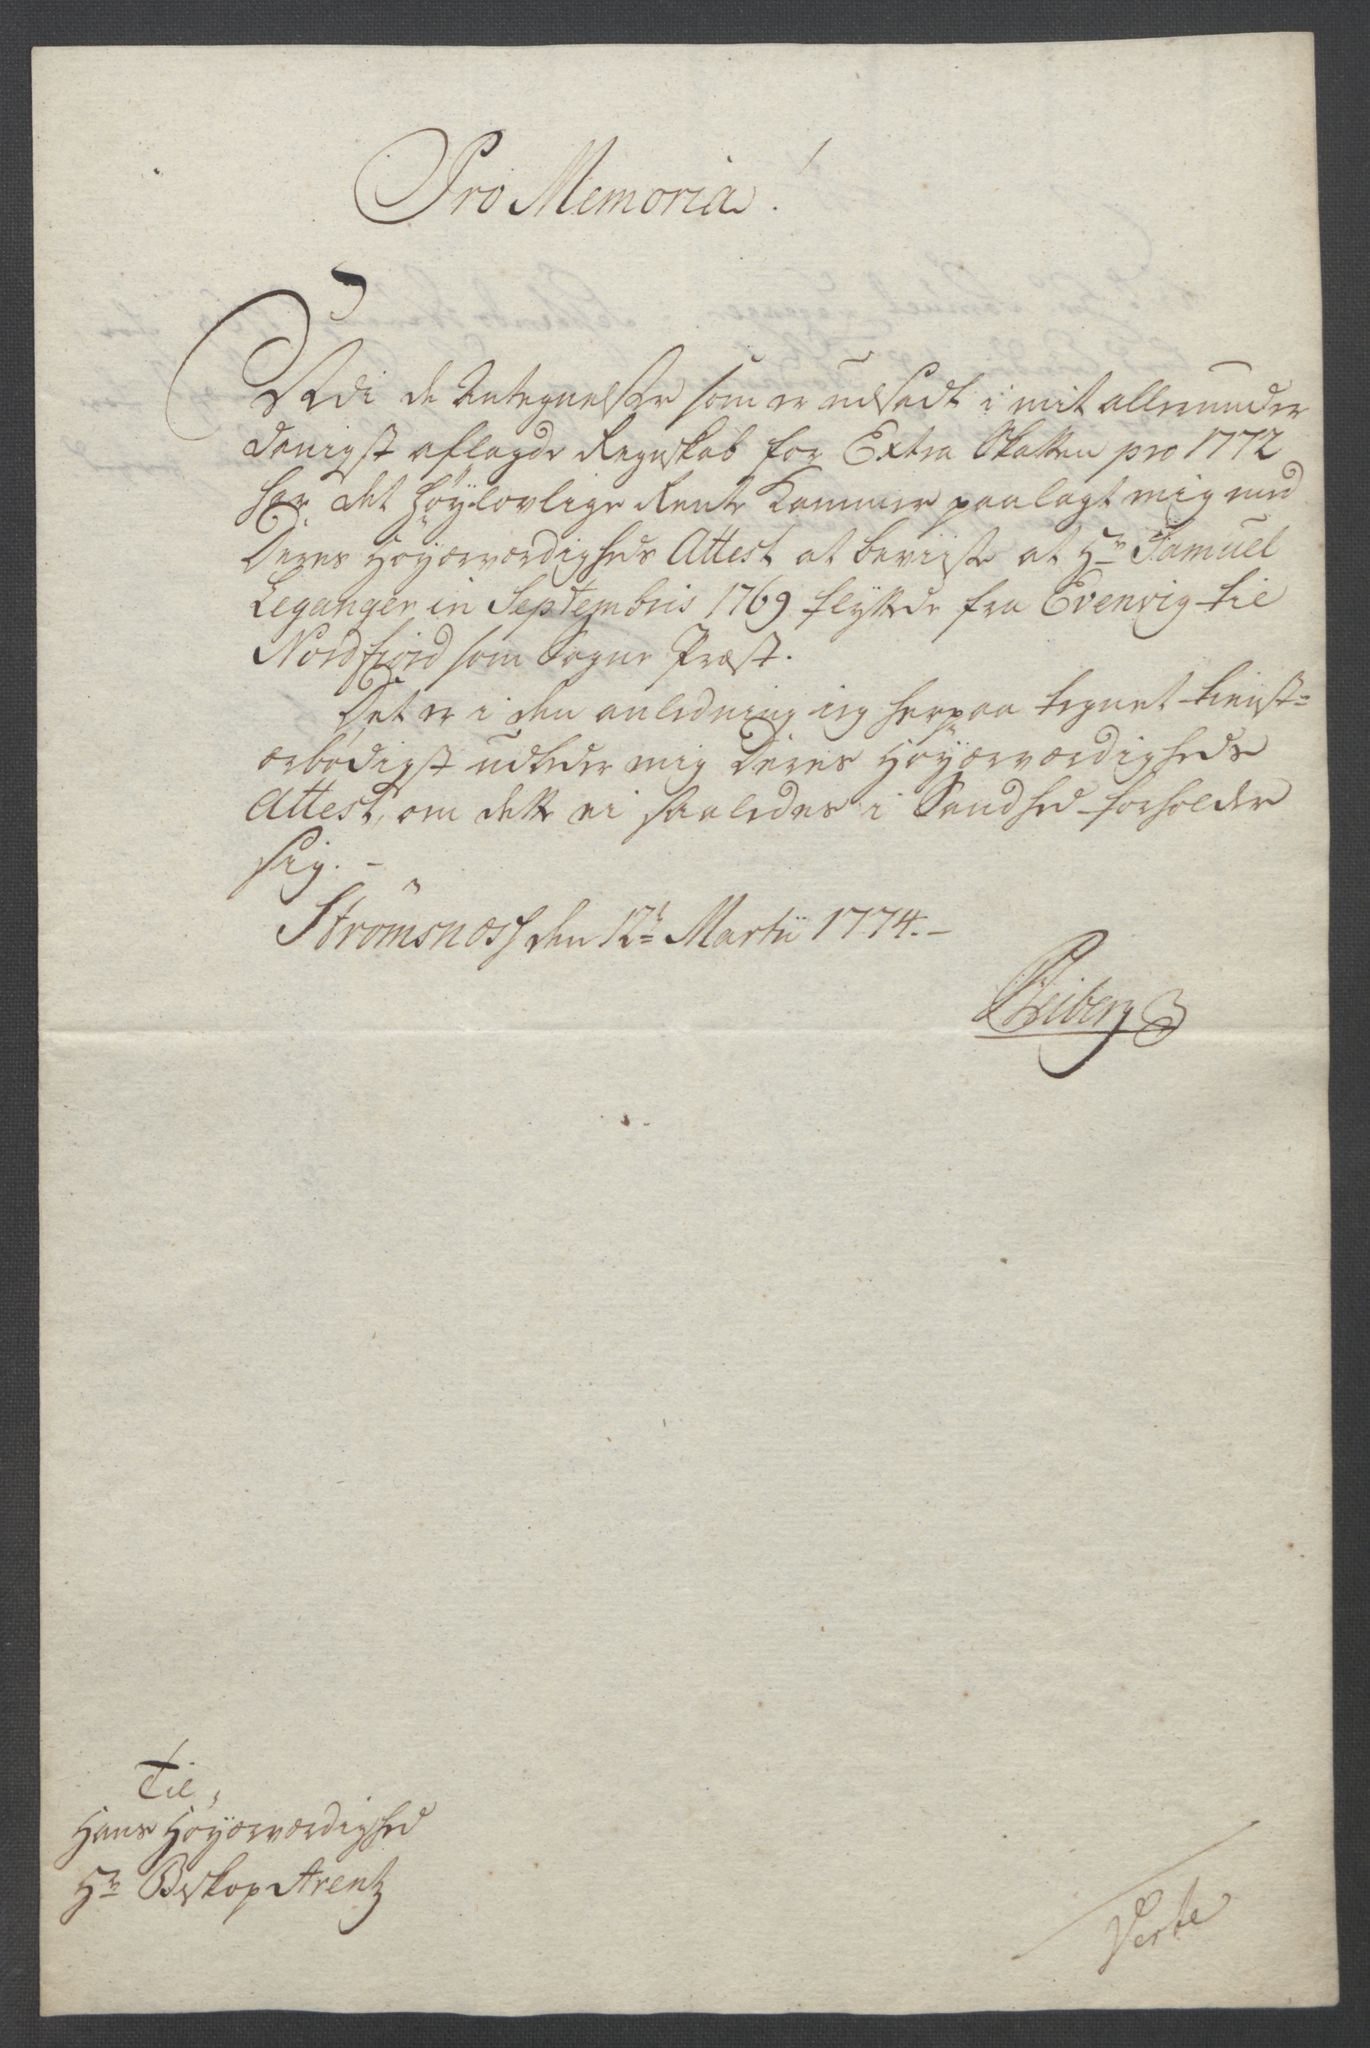 Pro Memoria!
Udi de Antegnelser som er udsadt i mit allerunder
danigst aflagde Regnskab for Extra Skatten pro 1772
har det Høylovlige Rente Kammer paalagt mig med
Deres Høyærværdigheds Attest at beviise at Hr Samuel
Leganger in Septembris 1769 flyttede fra Evenvig til
Nordfiord som Sogne Præst.
Det er i den anledning ieg herpaa tegnet tienst=
ærbødigst udbeder mig Deres Høyærværdigheds
Attest, om dette ei saaledes i Sandhed forholder
sig. -
Strømsnæs den 12te Martii 1774. -
Heiberg
Til,
Hans Høyærværdighed
Hr Biskop Arentz
Verte